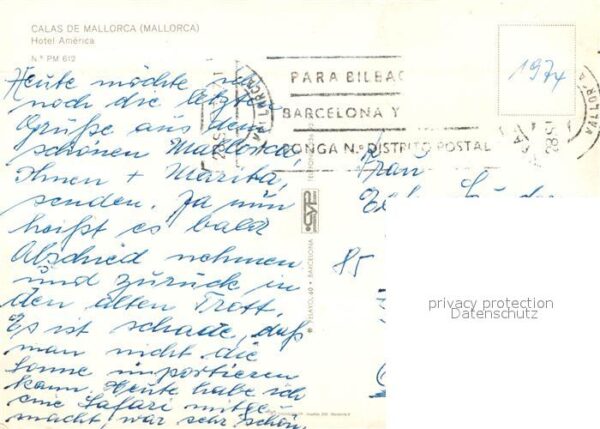 CALAS DE MALLORCA (MALLORCA)
Hotel América
N.º PM 612
Heute möchte ich
noch die letzten
Grüße aus dem
schönen Mallorca,
Ihnen + Marita,
senden. Ja nun
heißt es bald
Abschied nehmen
und zurück in
den alten Trott.
Es ist schade, daß
man nicht die
Sonne importieren
kann. Heute habe ich
eine Safari mitge
macht, war sehr schön,
PARA BILBAO
BARCELONA Y
PONGA N.º DISTRITO POSTAL
MALLORCA
28 S
1974
Frau
85
PELAYO, 60 • BARCELONA
privacy protection
Datenschutz